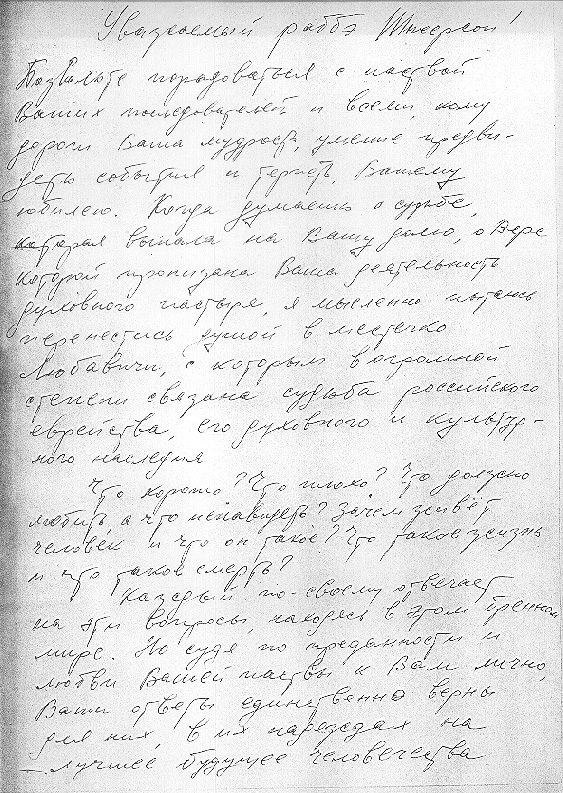 Уважаемый раббэ Шнеерсон!
Позвольте порадоваться с паствой
Ваших последователей и всеми, кому
дороги Ваша мудрость, умение предви-
деть события и терпеть, Вашему
юбилею. Когда думаешь о судьбе,
которая выпала на Вашу долю, о Вере
которой пронизана Ваша деятельность
духовного пастыря, я мысленно пытаюсь
перенестись душой в местечко
Любавичи, с которым в огромной
степени связана судьба российского
еврейства, его духовного и культур-
ного наследия
Что хорошо? Что плохо? Что должно
любить, а что ненавидеть? Зачем живёт
человек и что он такое? Что такое жизнь
и что такое смерть?
Каждый по-своему отвечает
на эти вопросы, находясь в этом бренном
мире. Но судя по преданности и
любви Вашей паствы к Вам лично,
Ваши ответы единственно верны
для них, в их надеждах на
лучшее будущее человечества